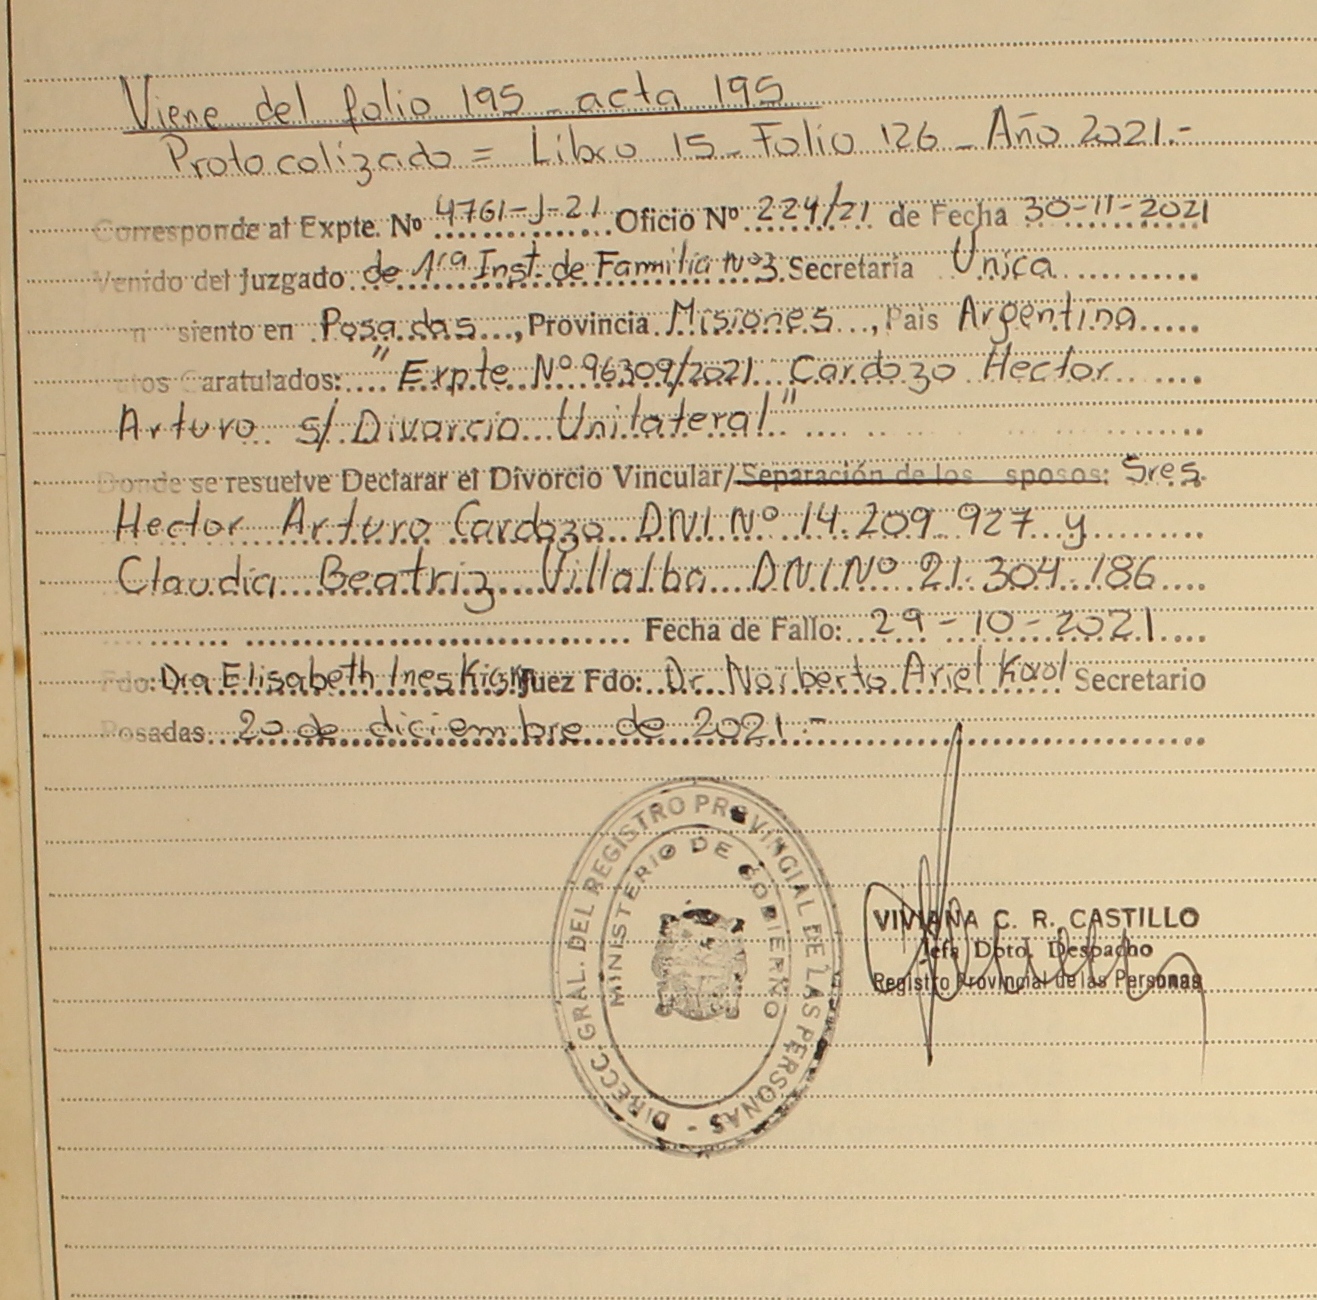 Viene del folio 195 - acta 195
Protocolizado = Libro 15 - Folio 126 - Año 2021.-
Corresponde al Expte. Nº 4761-J-21 Oficio Nº 224/21 de Fecha 30-11-2021
Venido del Juzgado de 1ra Inst. de Familia Nº3 Secretaria Unica
n siento en Posadas, Provincia Misiones, Pais Argentina
tos Caratulados: "Expte Nº 96309/2021 Cardozo Hector
Arturo s/ Divorcio Unilateral"
Donde se resuelve Declarar el Divorcio Vincular/Separación de los sposos: Sres.
Hector Arturo Cardozo D.N.I. Nº 14.209.927 y
Claudia Beatriz Villalba D.N.I. Nº 21.304.186
Fecha de Fallo: 29-10-2021
Fdo: Dra Elisabeth Ines Juez Fdo: Dr. Norberto Ariel Secretario
Posadas 20 de diciembre de 2021.-
DIRECC. GRAL. DEL REGISTRO PROVINCIAL DE LAS PERSONAS -
MINISTERIO DE GOBIERNO
VIVIANA C. R. CASTILLO
Jefa Dpto. Despacho
Registro Provincial de las Personas